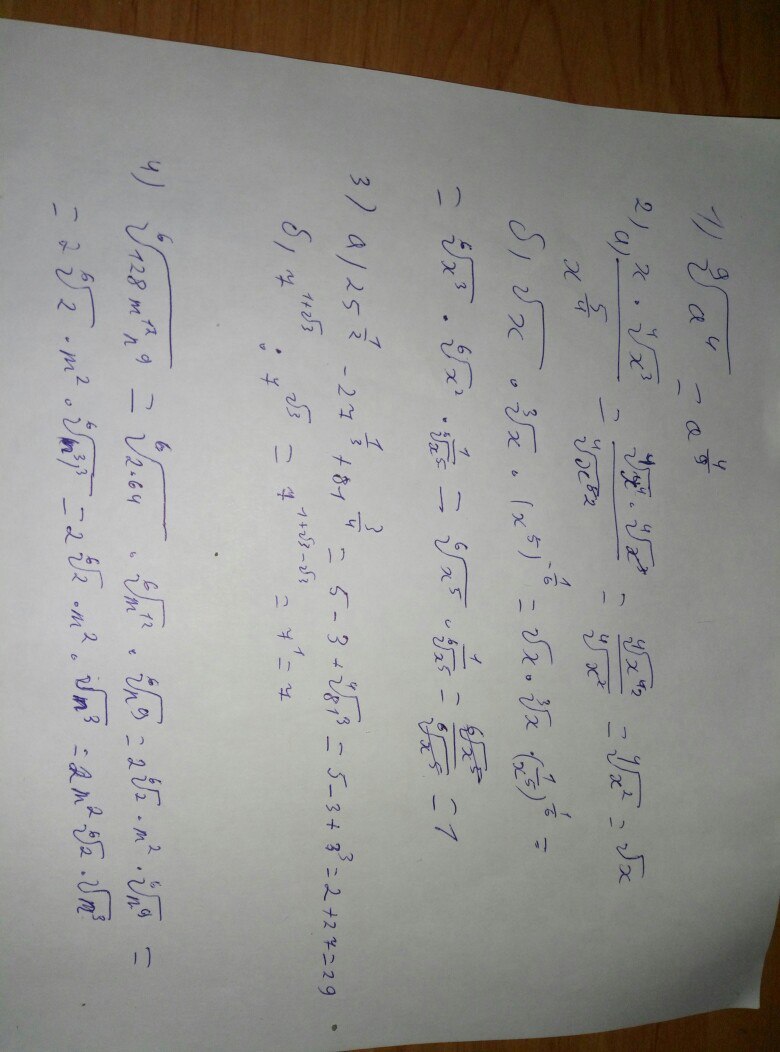 1) ⁹√a⁴ = a^(4/9)
2) а) (x · ⁴√x³) / x^(5/4) = (⁴√x⁴ · ⁴√x³) / ⁴√x⁵ = ⁴√x² = √x
б) √x · ³√x · (x⁵)^(-1/6) = √x · ³√x · (1/x⁵)^(1/6) =
= ⁶√x³ · ⁶√x² · 1/⁶√x⁵ = ⁶√x⁵ · 1/⁶√x⁵ = ⁶√x⁵/⁶√x⁵ = 1
3) а) 25^(1/2) - 27^(1/3) + 81^(3/4) = 5 - 3 + ⁴√81³ = 5 - 3 + 3³ = 2 + 27 = 29
б) 7^(1+√3) : 7^(√3) = 7^(1+√3-√3) = 7¹ = 7
4) ⁶√(128m¹²n⁹) = ⁶√(2·64) · ⁶√m¹² · ⁶√n⁹ = 2⁶√2 · m² · ⁶√n⁹ =
= 2⁶√2 · m² · ⁶√(n³)³ = 2⁶√2 · m² · √n³ = 2m² ⁶√2 · √n³